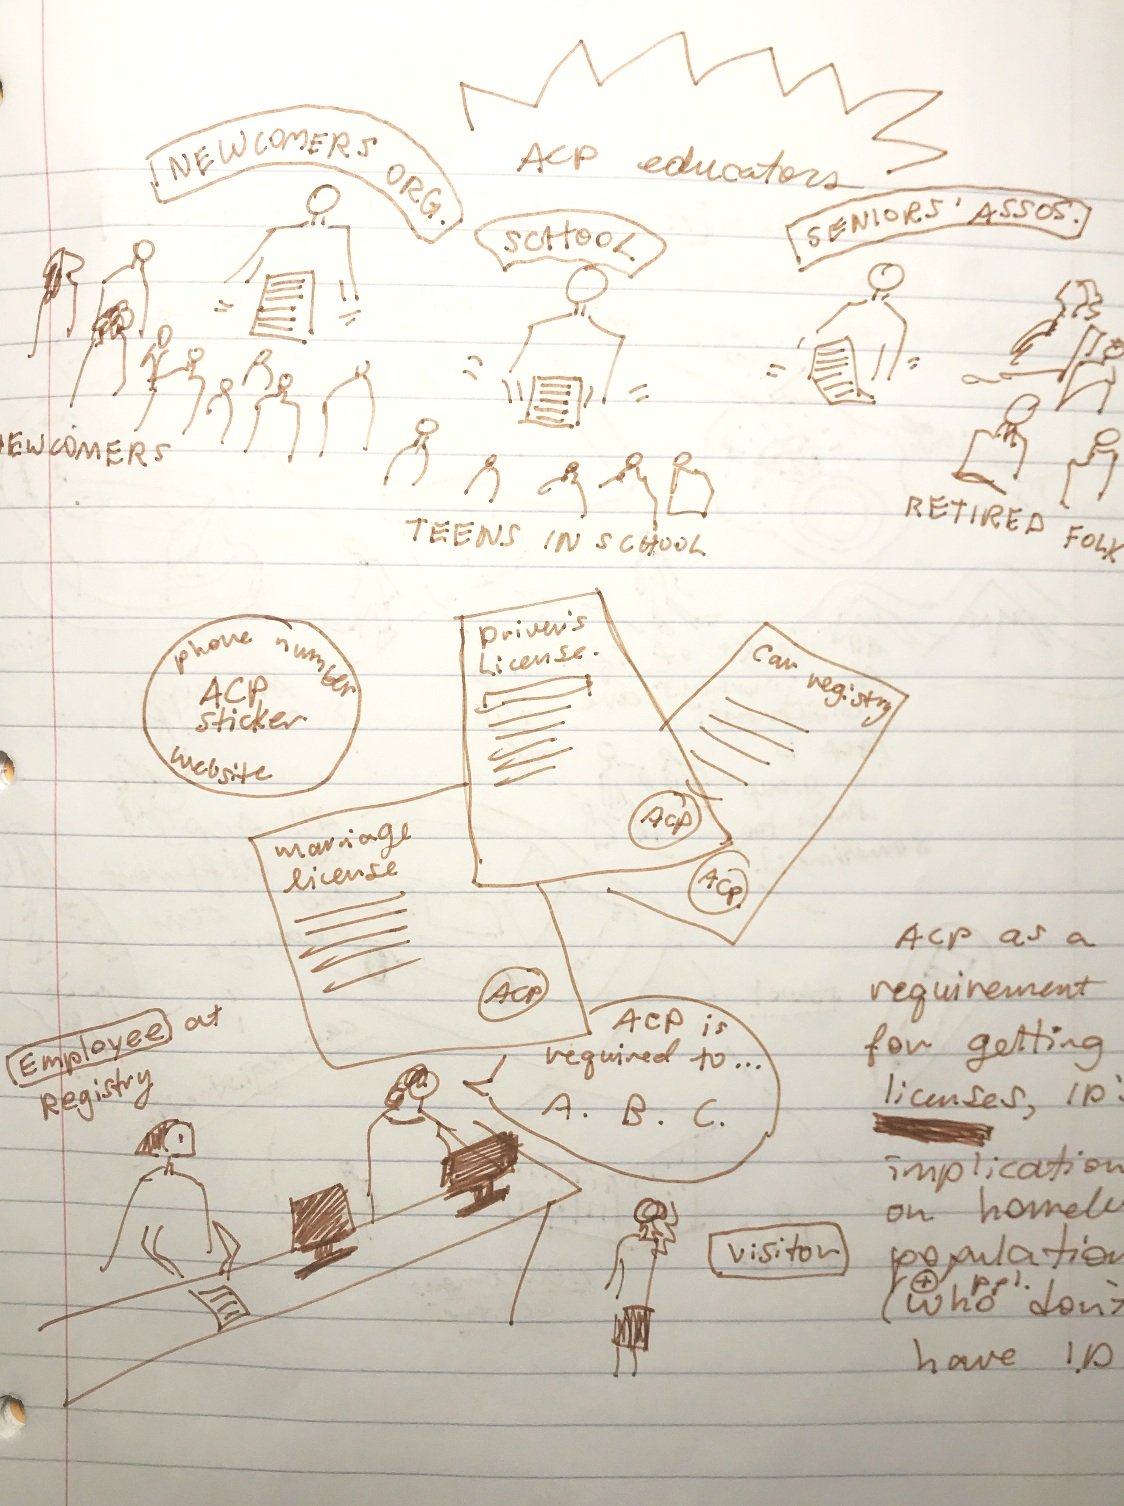 ACP educators
NEWCOMERS ORG.
SCHOOL
SENIORS' ASSOS.
NEWCOMERS
TEENS IN SCHOOL
RETIRED FOLK
phone number
ACP
sticker
website
Driver's
License.
ACP
Car registry
ACP
marriage
license
ACP
Employee at
Registry
ACP is
required to...
A. B. C.
visitor
ACP as a
requirement
for getting
licenses, ID's
implication
on
population
(⊕ ppl.
who don't
have ID